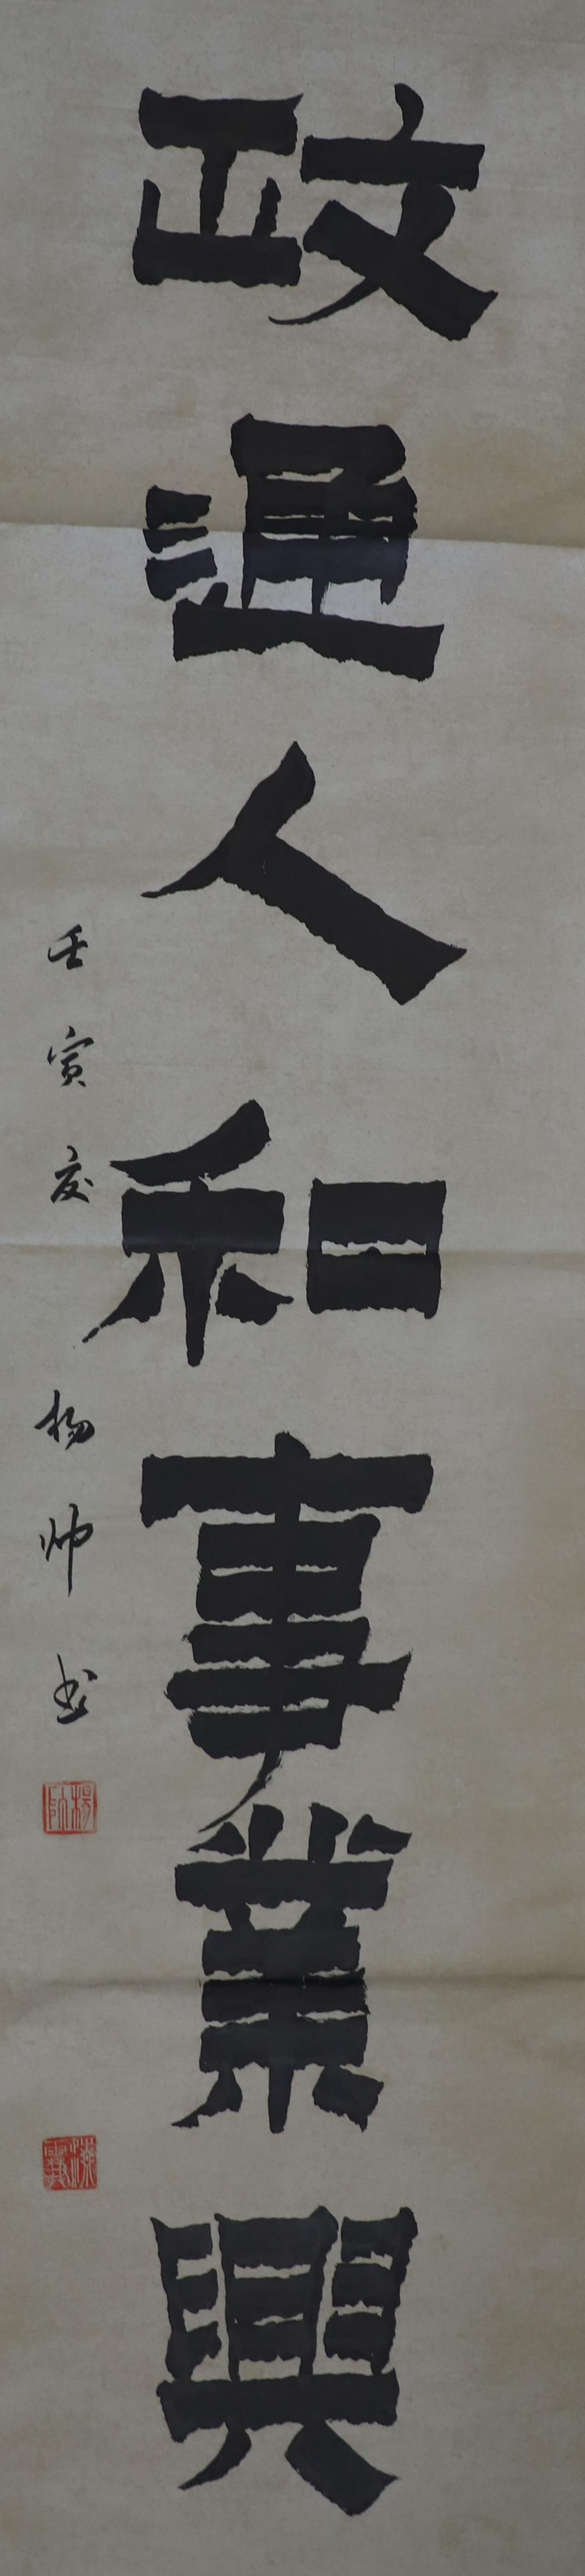 政通人和事業興
壬寅夏杨帅书
楊帥